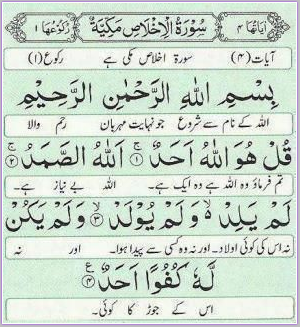 اٰیَاتُهَا ۴ سُوْرَةُ الْاِخْلَاصِ مَكِّیَّةٌ رُكُوْعُهَا ۱
آیات (۴) سورۃ اخلاص مکی ہے رکوع (۱)
بِسْمِ اللهِ الرَّحْمٰنِ الرَّحِیْمِ
اللہ کے نام سے شروع جو نہایت مہربان رحم والا
قُلْ هُوَ اللهُ اَحَدٌ ۱ اَللهُ الصَّمَدُ ۲
تم فرماؤ وہ اللہ ہے وہ ایک ہے۔ اللہ بے نیاز ہے۔
لَمْ یَلِدْ ۙ۬ وَ لَمْ یُوْلَدْ ۳ وَ لَمْ یَكُنْ
نہ اس کی کوئی اولاد۔ اور نہ وہ کسی سے پیدا ہوا۔ اور نہ
لَّهٗ كُفُوًا اَحَدٌ ۴ ع
اس کے جوڑ کا کوئی۔